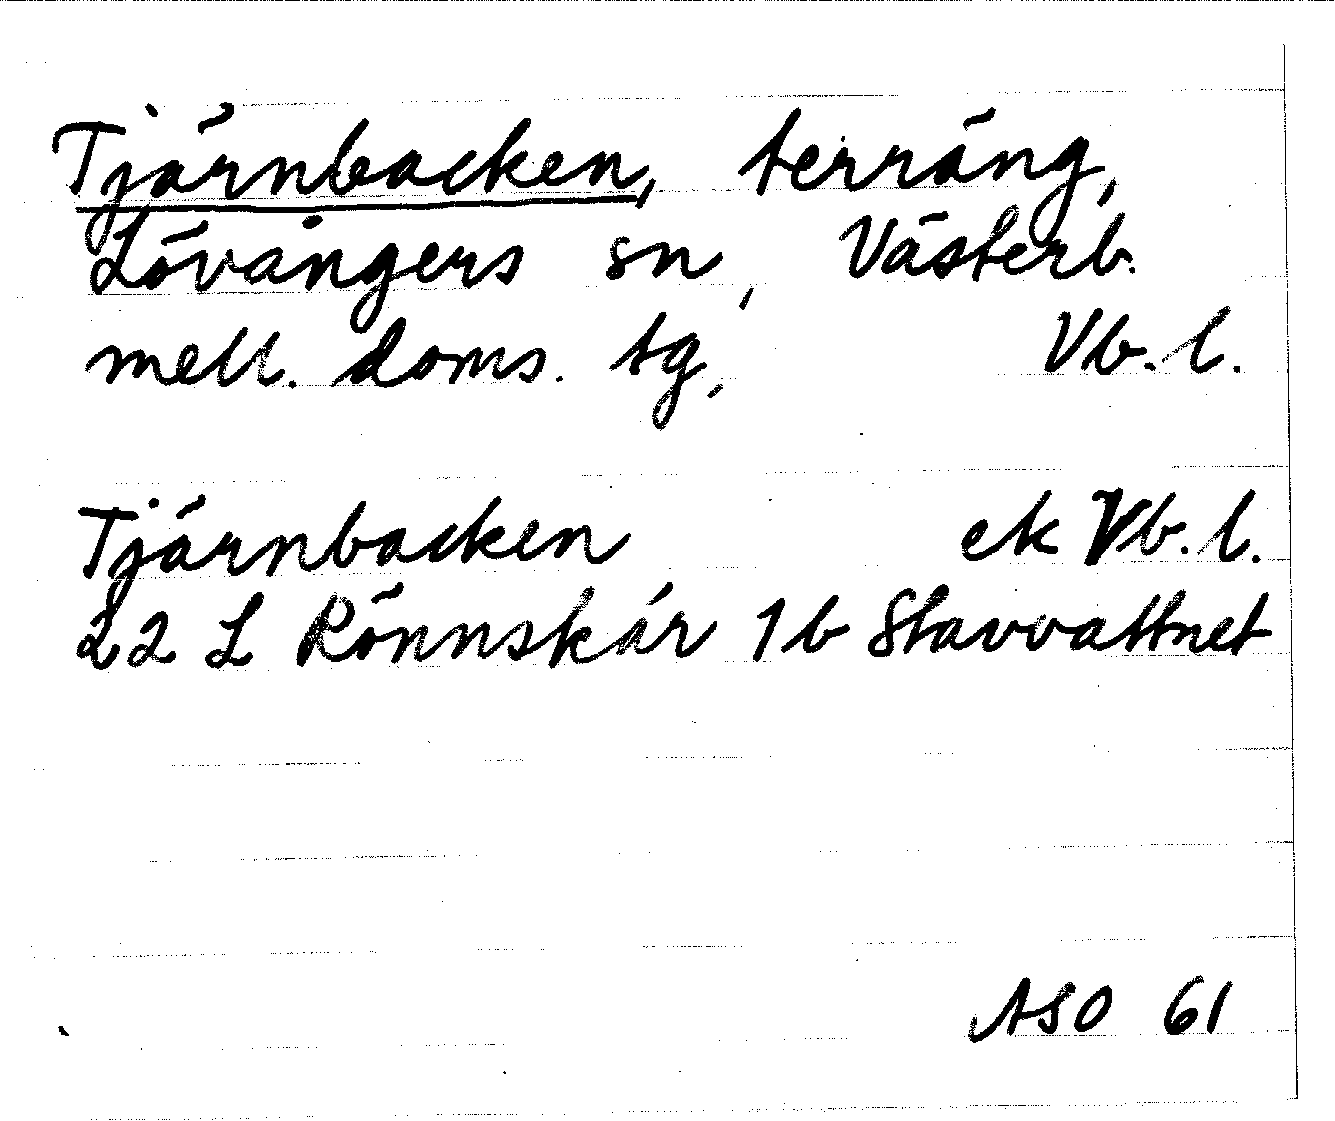 Tjärnbacken, terräng,
Lövångers sn, Västerb.
mell. doms. tg, Vb. l.
Tjärnbacken ek Vb. l.
22 L Rönnskär 1b Stavvattnet
ASO 61